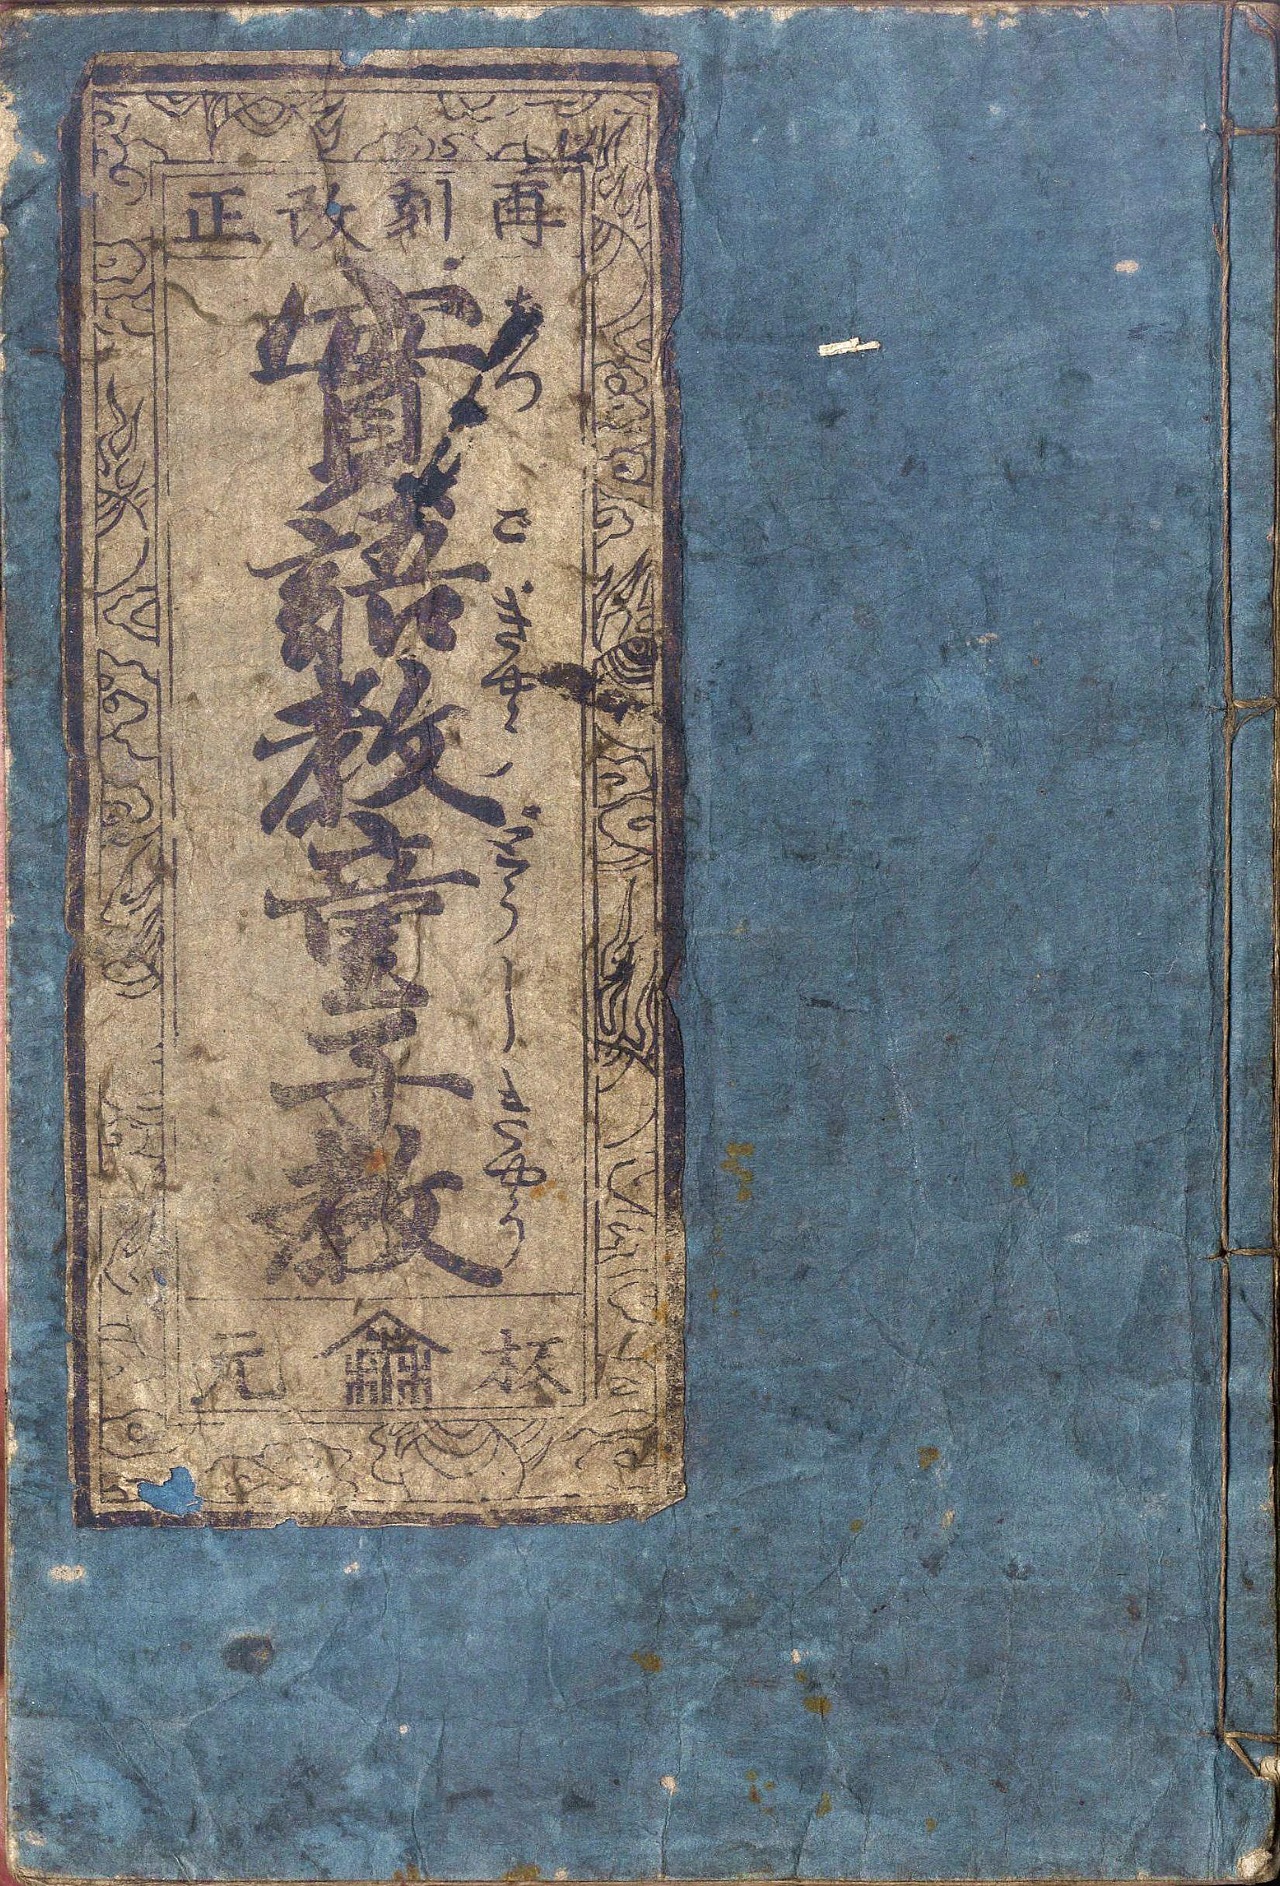 再刻改正
つごきやうどうしきやう
實語教童子教
板元